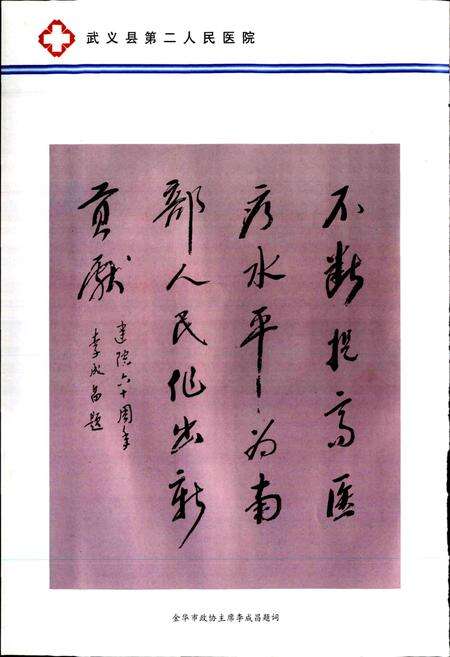 武义县第二人民医院
不断提高医
疗水平，为南
部人民作出新
贡献
建院六十周年
李成昌题
金华市政协主席李成昌题词